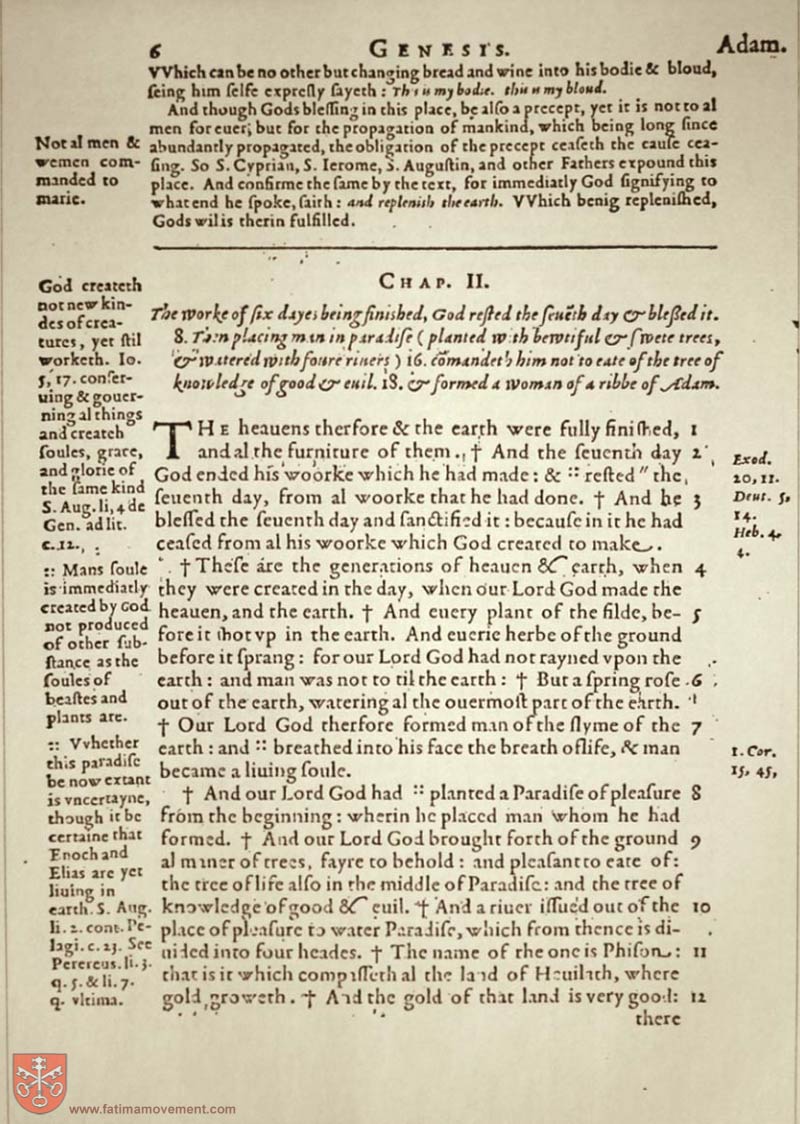 6 GENESIS. Adam.
VVhich can be no other but changing bread and wine into his bodie & bloud,
ſeing him ſelfe expreſly ſayeth : This is my bodie. this is my bloud.
And though Gods bleſſing in this place, be alſo a precept, yet it is not to al
men for euer, but for the propagation of mankind, which being long ſince
abundantly propagated, the obligation of the precept ceaſeth the cauſe cea-
ſing. So S. Cyprian, S. Ierome, S. Auguſtin, and other Fathers expound this
place. And confirme the ſame by the text, for immediatly God ſignifying to
what end he ſpoke, ſaith : and repleniſh the earth. VVhich benig repleniſhed,
Gods wil is therin fulfilled.
Not al men &
wemen com-
manded to
marie.
CHAP. II.
The worke of ſix dayes being finiſhed, God reſted the ſeuẽth day & bleſſed it.
8. Then placing man in paradiſe ( planted with bewtiful & ſwete trees,
& watered with foure riuers ) 16. cõmandeth him not to eate of the tree of
knowledge of good & euil. 18. & formed a woman of a ribbe of Adam.
God createth
not new kin-
des of crea-
tures, yet ſtil
worketh. Io.
5, 17. conſer-
uing & gouer-
ning al things
and createth
ſoules, grace,
and glorie of
the ſame kind
S. Aug. li, 4 de
Gen. ad lit.
c. 12,
:: Mans ſoule
is immediatly
created by God
not produced
of other ſub-
ſtance as the
ſoules of
beaſtes and
plants are.
:: Vvhether
this paradiſe
be now extant
is vncertayne,
though it be
certaine that
Enoch and
Elias are yet
liuing in
earth. S. Aug.
li. 2. cont. Pe-
lagi. c. 23. See
Perereus. li. 3.
q. 5. & li. 7.
q. vltima.
THE heauens therfore & the earth were fully finiſhed, 1
and al the furniture of them. † And the ſeuenth day 2
God ended his woorke which he had made : & :: reſted " the
ſeuenth day, from al woorke that he had done. † And he 3
bleſſed the ſeuenth day and ſanctified it : becauſe in it he had
ceaſed from al his woorke which God created to make.
† Theſe are the generations of heauen & earth, when 4
they were created in the day, when our Lord God made the
heauen, and the earth. † And euery plant of the filde, be- 5
fore it ſhot vp in the earth. And euerie herbe of the ground
before it ſprang : for our Lord God had not rayned vpon the
earth : and man was not to til the earth : † But a ſpring roſe 6
out of the earth, watering al the ouermoſt part of the earth.
† Our Lord God therfore formed man of the ſlyme of the 7
earth : and :: breathed into his face the breath of life, & man
became a liuing ſoule.
† And our Lord God had :: planted a Paradiſe of pleaſure 8
from the beginning : wherin he placed man whom he had
formed. † And our Lord God brought forth of the ground 9
al maner of trees, fayre to behold : and pleaſant to eate of :
the tree of life alſo in the middle of Paradiſe : and the tree of
knowledge of good & euil. † And a riuer iſſued out of the 10
place of pleaſure to water Paradiſe, which from thence is di-
uided into four heades. † The name of the one is Phiſon : 11
that is it which compaſſeth al the land of Heuilath, where
gold groweth. † And the gold of that land is very good : 12
there
Exod.
20, 11.
Deut. 5,
14.
Heb. 4,
4.
1. Cor.
15, 45,
www.fatimamovement.com